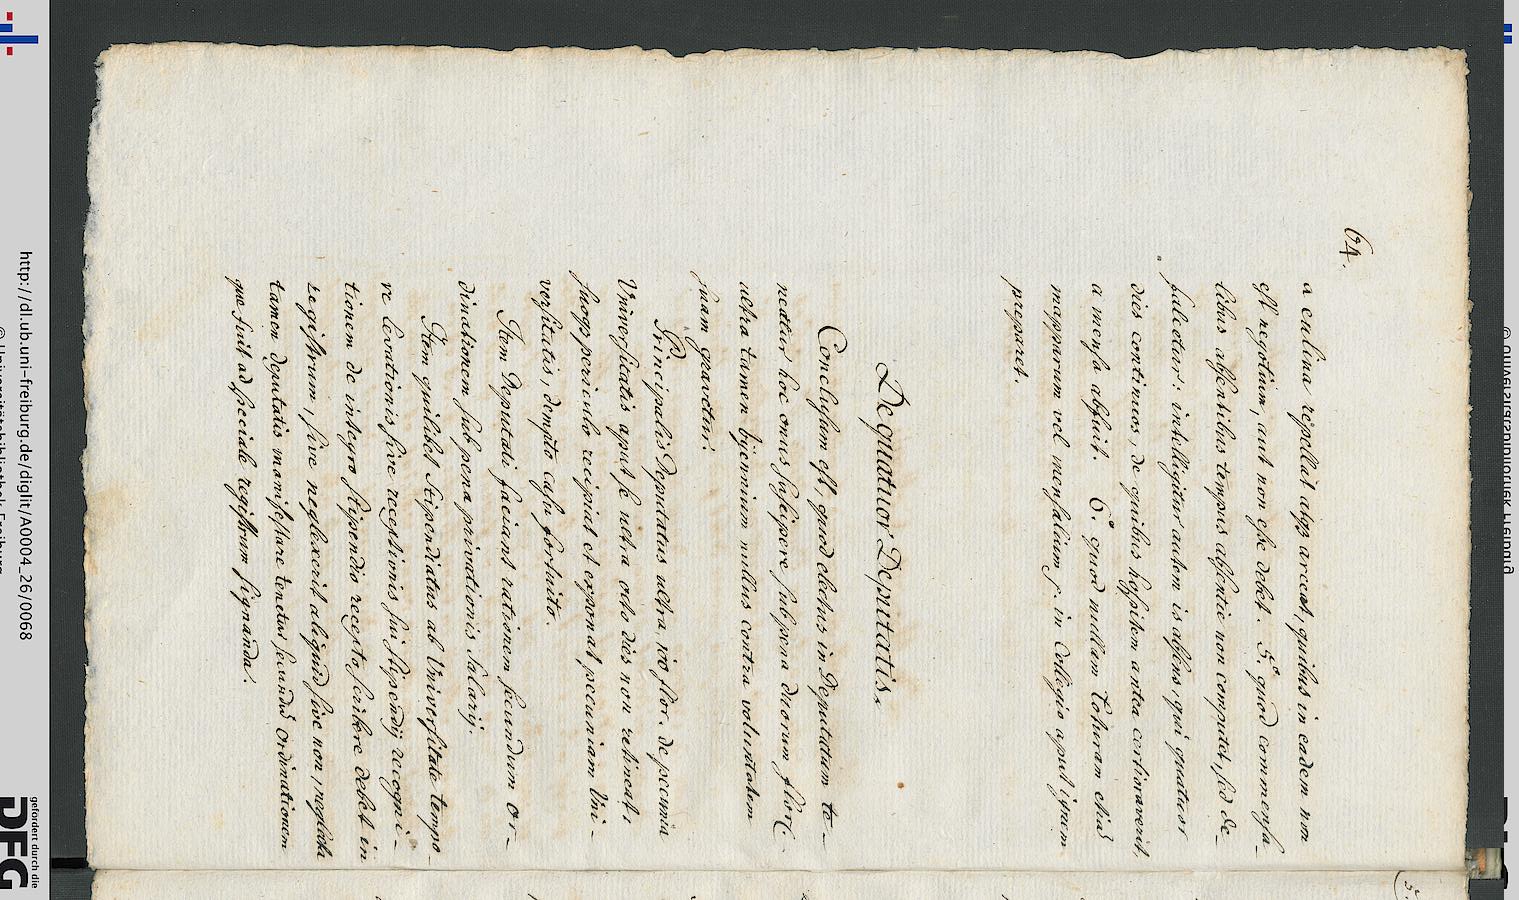 64.
a culina repellat atqꝫ arceat, quibus in eadem non
est negotium, aut non esse debet. 5.º quod commensa-
libus absentibus tempus absentiæ non computet, sed de-
falcetur: intelligitur autem is absens, qui quatuor
dies continuos, de quibus hospitem antea certioraverit,
a mensa abfuit. 6.º quod nullam Loturam etiam
mapparum vel mensalium in Collegio apud ignem
præparet.
De quatuor Deputatis.
Conclusum est, quod electus in Deputatum te-
neatur hoc onus suscipere sub pœna duorum flore.
ultra tamen biennium nullus contra voluntatem
suam gravetur.
Principalis Deputatus ultra 100 flor. de pecunia
Universitatis apud se ultra octo dies non retineat,
suoqꝫ periculo recipiat et exponat pecuniam Uni-
versitatis, dempto casu fortuito.
Item Deputati faciant rationem secundum or-
dinationem sub pœna privationis Salarij.
Item quilibet Stipendiatus ab Universitate tempo-
re levationis sive receptionis sui stipendij recogni-
tionem de integro stipendio recepto scribere debet in
registrum, sive neglexerit aliquid sive non, neglecta
tamen deputatis manifestare tenetur secundum ordinationem
quæ fuit ad speciale registrum signanda.
http://dl.ub.uni-freiburg.de/diglit/A0004_26/0068
© Universitätsbibliothek Freiburg
gefördert durch die
DFG